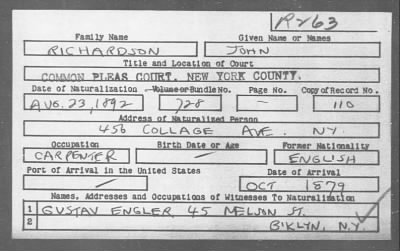 R263
Family Name Given Name or Names
RICHARDSON JOHN
Title and Location of Court
COMMON PLEAS COURT, NEW YORK COUNTY.
Date of Naturalization Volume or Bundle No. Page No. Copy of Record No.
AUG. 23, 1892 728 — 110
Address of Naturalized Person
456 COLLAGE AVE. N.Y.
Occupation Birth Date or Age Former Nationality
CARPENTER — ENGLISH
Port of Arrival in the United States Date of Arrival
— OCT 1879
Names, Addresses and Occupations of Witnesses To Naturalization
1 GUSTAV ENGLER, 45 NELSON ST.
2 B'KLYN, N.Y.